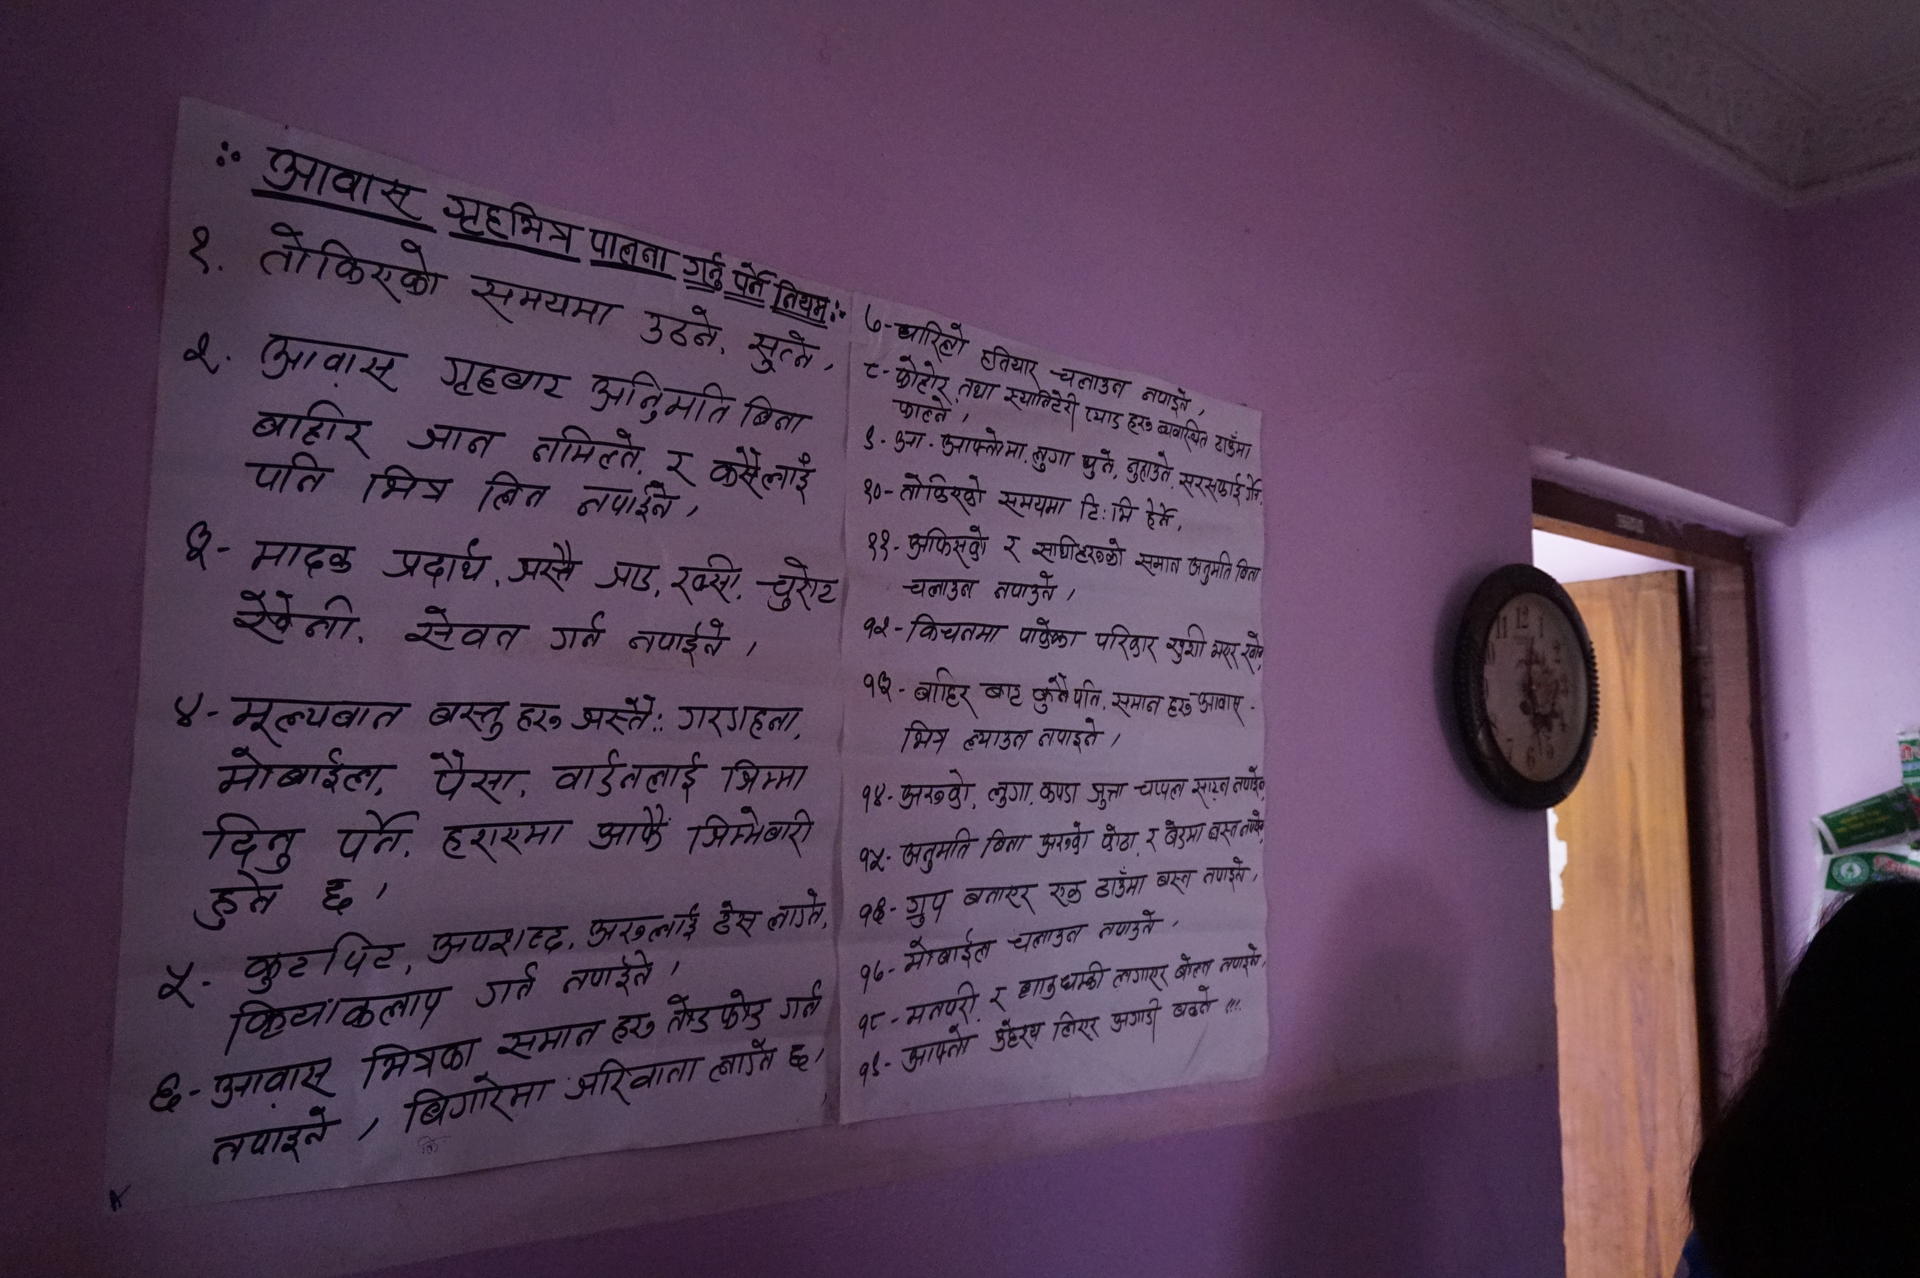 आवास गृहभित्र पालना गर्नु पर्ने नियमः
१. तोकिएको समयमा उठने, सुत्ने,
२. आवास गृहबार अनुिमति बिना
बाहीर जान नमिल्ने, र कसैलाई
पनि भित्र लिन नपाईने,
३- मादक प्रदार्थ, जस्तै जाड, रक्सी, चुरोट
खैनी, सेवन गर्न नपाईने,
४- मूल्यबान बस्तु हरु जस्तैः गरगहना,
मोबाईल, पैसा, वार्डनलाई जिम्मा
दिनु पर्ने, हराएमा आफै जिम्मेबारी
हुने छ,
५- कुटपिट, अपशब्द, अरुलाई ठेस लाग्ने,
क्रियाकलाप गर्न नपाईने,
६- आवास भित्रका समान हरु तोडफोड गर्न
नपाइने, बिगारेमा जरिवाना लाग्ने छ,
७- धारिलो हतियार चलाउन नपाईने,
८- फोहोर तथा स्यानिटेरी प्याड हरु ब्यवस्थित ठाउँमा
फाल्ने,
९- आ-आफ्नोमा, लुगा धुने, नुहाउने, सरसफाई गर्ने,
१०- तोकिएको समयमा टि:भि हेर्ने,
११- अफिसको र साथीहरुको समान अनुमति बिना
चलाउन नपाउने,
१२- किचनमा पाकेका परिकार खुशी भएर खाने,
१३- बाहिर बाट कुनै पनि, समान हरु आवास
भित्र ल्याउन नपाइने,
१४- अरुको, लुगा, कपडा जुत्ता चप्पल साटन नपाईने,
१५- अनुमति बिना अरुको कोठा, र बेडमा बस्न नपाईने,
१६- ग्रुप बनाएर एक ठाउँमा बस्न नपाईने,
१७- मोबाईल चलाउन नपाउने,
१८- मनपरी र धम्की लगाएर बोल्न नपाईने,
१९- आफ्नो उद्देश्य लिएर अगाडी बढ्ने !!!
12
11
1
2
7
6